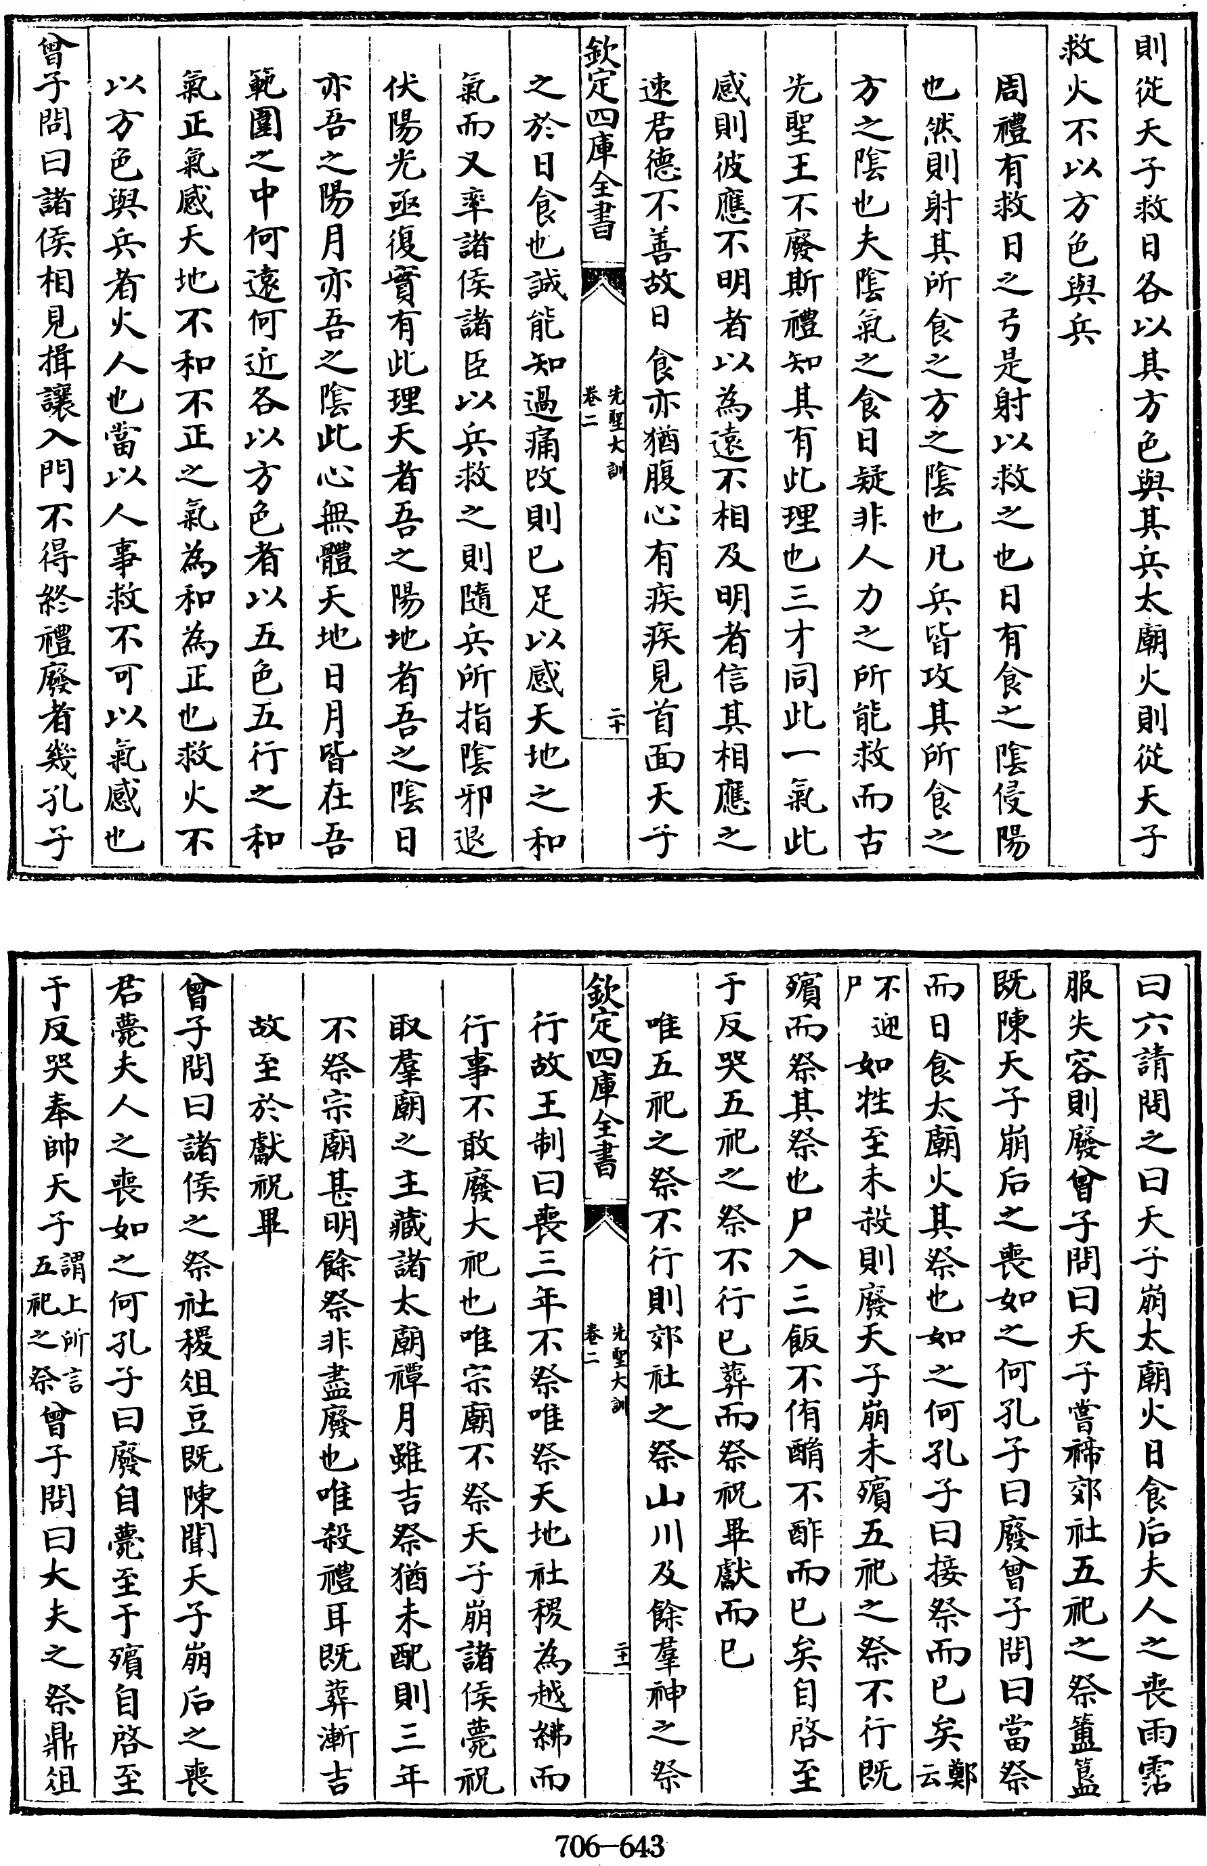 則從天子救日各以其方色與其兵太廟火則從天子
救火不以方色與兵
周禮有救日之弓是射以救之也日有食之陰侵陽
也然則射其所食之方之陰也凡兵皆攻其所食之
方之陰也夫陰氣之食日疑非人力之所能救而古
先聖王不廢斯禮知其有此理也三才同此一氣此
感則彼應不明者以為遠不相及明者信其相應之
速君德不善故日食亦猶腹心有疾疾見首面天子
欽定四庫全書
先聖大訓
卷二
二十
之於日食也誠能知過痛改則已足以感天地之和
氣而又率諸侯諸臣以兵救之則隨兵所指陰邪退
伏陽光亟復實有此理天者吾之陽地者吾之陰日
亦吾之陽月亦吾之陰此心無體天地日月皆在吾
範圍之中何遠何近各以方色者以五色五行之和
氣正氣感天地不和不正之氣為和為正也救火不
以方色與兵者火人也當以人事救不可以氣感也
曾子問曰諸侯相見揖讓入門不得終禮廢者幾孔子
曰六請問之曰天子崩太廟火日食后夫人之喪雨霑
服失容則廢曾子問曰天子嘗禘郊社五祀之祭簠簋
既陳天子崩后之喪如之何孔子曰廢曾子問曰當祭
而日食太廟火其祭也如之何孔子曰接祭而已矣鄭云
不迎尸如牲至未殺則廢天子崩未殯五祀之祭不行既
殯而祭其祭也尸入三飯不侑酳不酢而已矣自啓至
于反哭五祀之祭不行已葬而祭祝畢獻而已
唯五祀之祭不行則郊社之祭山川及餘羣神之祭
欽定四庫全書
先聖大訓
卷二
二十一
行故王制曰喪三年不祭唯祭天地社稷為越紼而
行事不敢廢大祀也唯宗廟不祭天子崩諸侯薨祝
取羣廟之主藏諸太廟禫月雖吉祭猶未配則三年
不祭宗廟甚明餘祭非盡廢也唯殺禮耳既葬漸吉
故至於獻祝畢
曾子問曰諸侯之祭社稷俎豆既陳聞天子崩后之喪
君薨夫人之喪如之何孔子曰廢自薨至于殯自啓至
于反哭奉帥天子謂上所言五祀之祭曾子問曰大夫之祭鼎俎
706-643